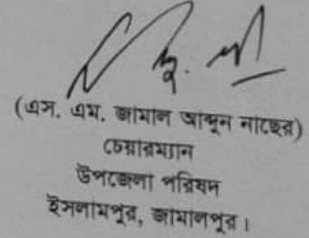 (এস. এম. জামাল আব্দুন নাছের)
চেয়ারম্যান
উপজেলা পরিষদ
ইসলামপুর, জামালপুর।